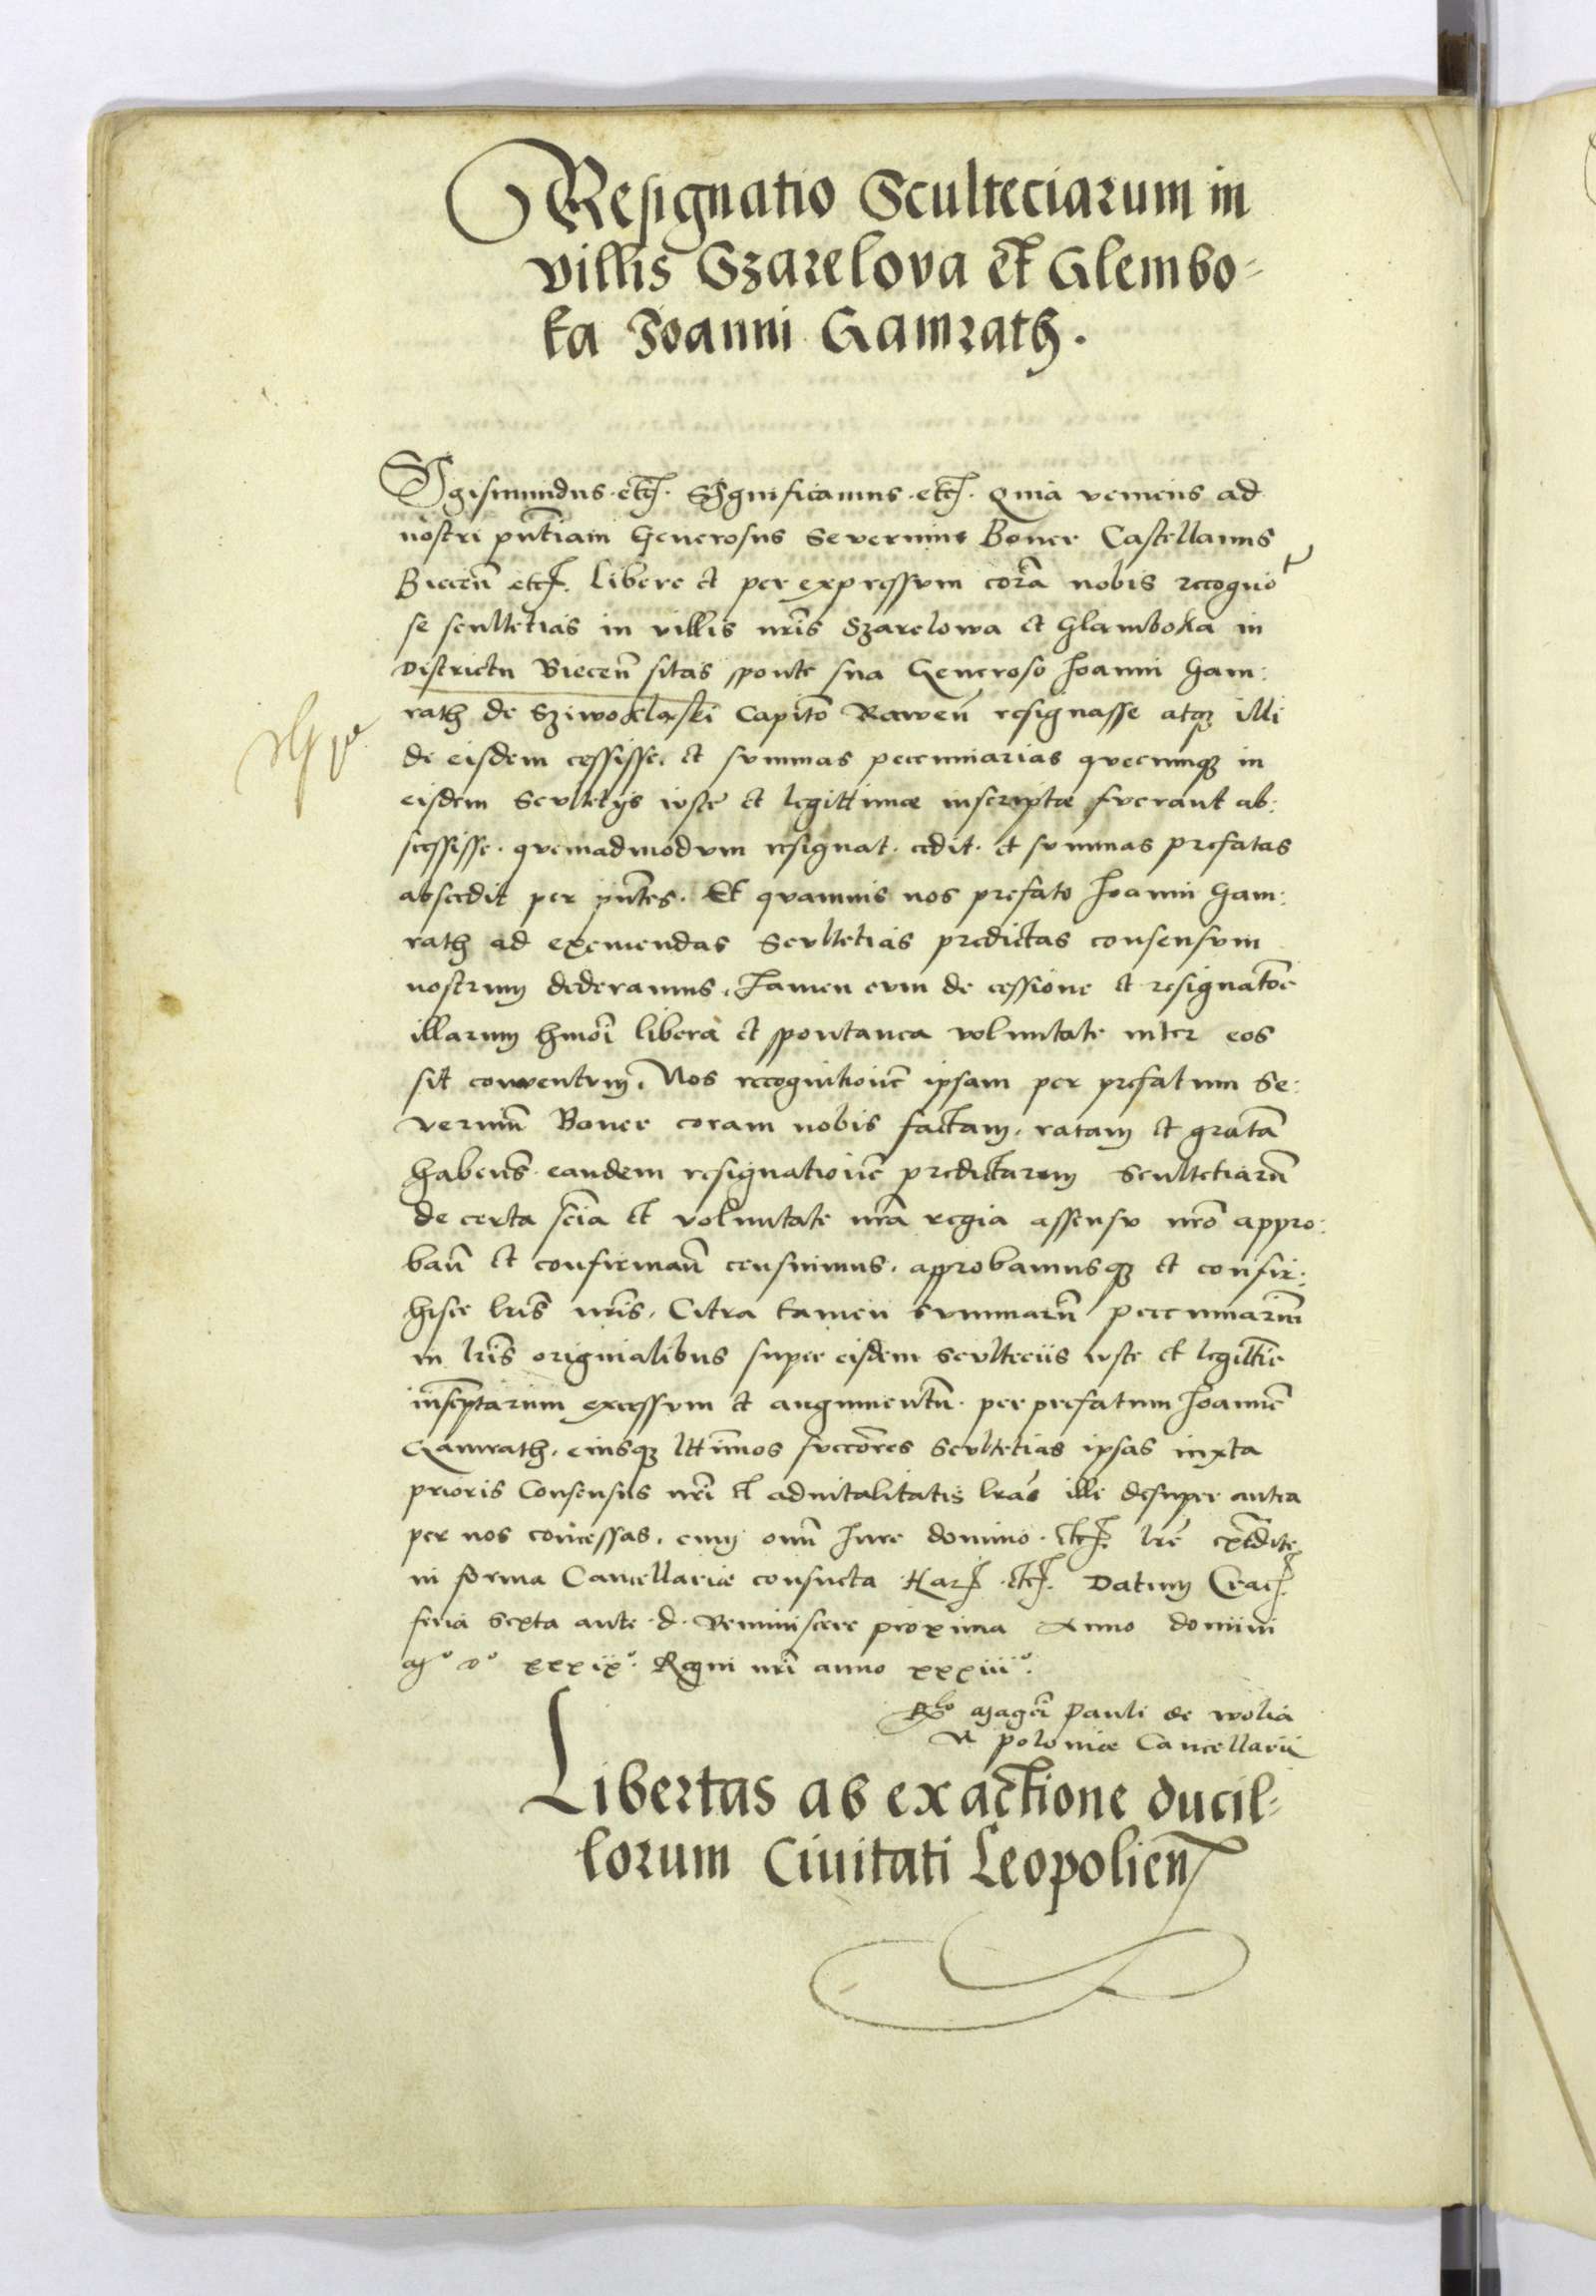 Resignatio Sculteciarum in
villis Szarelova et Glembo-
ka Joanni Gamrath.
Sigismundus. etc. Significamus. etc. Quia veniens ad
nostri pn̄tiam Generosus Severinus Boner Castellanus
Biecen̄ etc. libere et per expressum corā nobis recognō
se scultetias in villis nr̄is Szarelowa et Glamboka in
districtu Biecen̄ sitas sponte sua Generoso Joanni Gam:
rath de capitō Rawen̄ resignasse atq3 illi
de eisdem cessisse, et summas pecunniarias quecunq3 in
eisdem Scultetijs iuste et legittimæ inscriptæ fuerant ab:
scessisse. quemadmodum resignat. cedit. et summas prefatas
abscedit per pn̄tes. Et quamuis nos prefato Joanni Gam:
rath ad exemendas Scultetias predictas consensum
nostrum dederamus, tamen cum de cessione et resignatōe
illarum hmōi libera et spontanea voluntate inter eos
sit conventum, Nos recognitionē ipsam per prefatum Se:
verinū Boner coram nobis factam, ratam et gratā
habens eandem resignationē predictarum Scultetiarū
de certa scīa et voluntate nrā regia assensu nrō appro:
ban̄ et confirman̄ censuimus, approbamusq3 et confir:
hisce lr̄is nr̄is, Citra tamen summarū pecuniariū
in lr̄is originalibus super eisdem Sculteciis iuste et legittīe
inscr̄ptarum excessum et augumentū. per prefatum Joannē
Gamrath, eiusq3 ltt̄imos succōres Scultetias ipsas iuxta
prioris Consensus nr̄i et aduitalitatis lrās illi desuper antea
per nos concessas, cum omn̄ Jure dominō. etc. lr̄e
in forma Cancellariæ consueta Har. etc. Datum Crac.
feria sexta ante .d. Reminiscere proxima Anno domini
Mº Dº xxxixº. Regni nr̄i anno xxxiiiº.
Rlo Magci Pauli de wolia
R poloniæ Cancellarii
Libertas ab exactione ducil-
lorum Civitati Leopolien